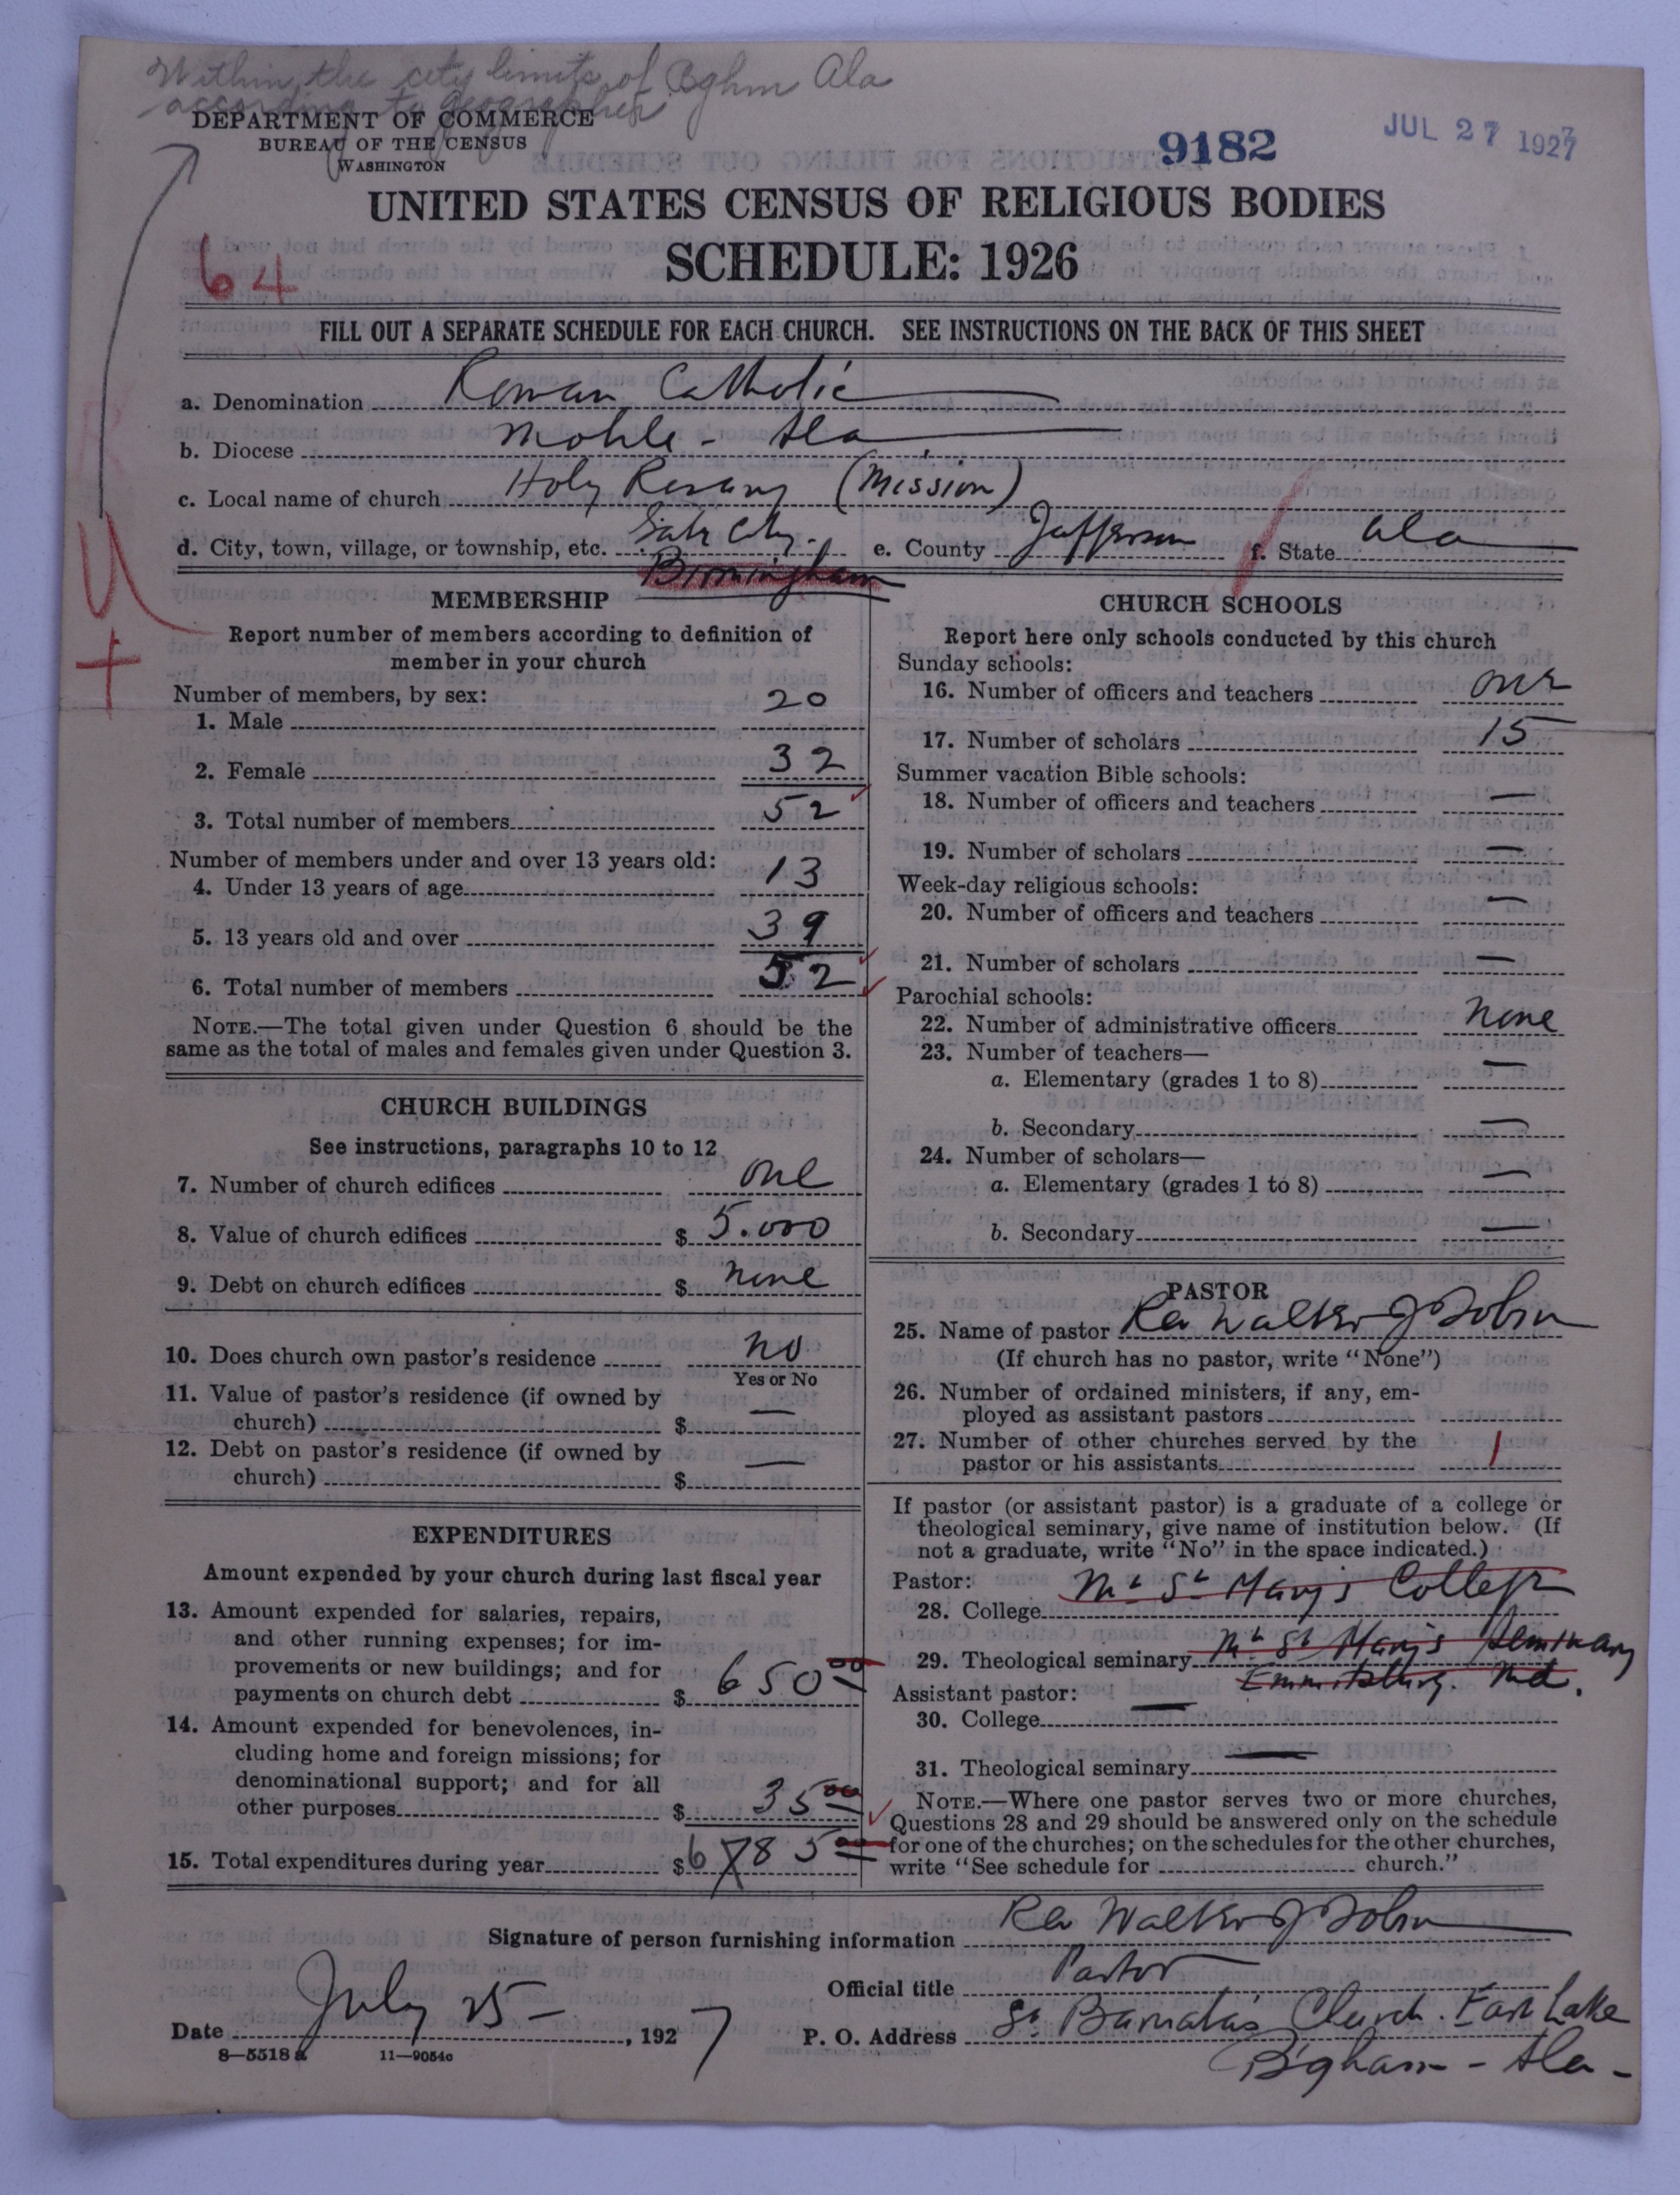 Within the city limits of Bghm Ala
according to geographer
DEPARTMENT OF COMMERCE
BUREAU OF THE CENSUS
WASHINGTON
9182
JUL 27 1927
UNITED STATES CENSUS OF RELIGIOUS BODIES
SCHEDULE: 1926
64
FILL OUT A SEPARATE SCHEDULE FOR EACH CHURCH. SEE INSTRUCTIONS ON THE BACK OF THIS SHEET
a. Denomination Roman Catholic
b. Diocese Mobile - Ala
c. Local name of church Holy Rosary (Mission)
d. City, town, village, or township, etc. Gate City. e. County Jefferson f. State Ala
Birmingham
MEMBERSHIP
Report number of members according to definition of
member in your church
Number of members, by sex:
1. Male 20
2. Female 32
3. Total number of members 52
Number of members under and over 13 years old:
4. Under 13 years of age 13
5. 13 years old and over 39
6. Total number of members 52
NOTE.—The total given under Question 6 should be the
same as the total of males and females given under Question 3.
CHURCH BUILDINGS
See instructions, paragraphs 10 to 12
7. Number of church edifices one
8. Value of church edifices $ 5.000
9. Debt on church edifices $ none
10. Does church own pastor's residence no
Yes or No
11. Value of pastor's residence (if owned by
church) $ —
12. Debt on pastor's residence (if owned by
church) $ —
EXPENDITURES
Amount expended by your church during last fiscal year
13. Amount expended for salaries, repairs,
and other running expenses; for im-
provements or new buildings; and for
payments on church debt $ 650 00
14. Amount expended for benevolences, in-
cluding home and foreign missions; for
denominational support; and for all
other purposes $ 35 00
15. Total expenditures during year $ 6785 00
CHURCH SCHOOLS
Report here only schools conducted by this church
Sunday schools:
16. Number of officers and teachers one
17. Number of scholars 15
Summer vacation Bible schools:
18. Number of officers and teachers —
19. Number of scholars —
Week-day religious schools:
20. Number of officers and teachers —
21. Number of scholars —
Parochial schools:
22. Number of administrative officers none
23. Number of teachers—
a. Elementary (grades 1 to 8) —
b. Secondary —
24. Number of scholars—
a. Elementary (grades 1 to 8) —
b. Secondary —
PASTOR
25. Name of pastor Rev Walter J Tobin
(If church has no pastor, write "None")
26. Number of ordained ministers, if any, em-
ployed as assistant pastors
27. Number of other churches served by the
pastor or his assistants 1
If pastor (or assistant pastor) is a graduate of a college or
theological seminary, give name of institution below. (If
not a graduate, write "No" in the space indicated.)
Pastor:
28. College Mt St Mary's College
29. Theological seminary Mt St Mary's Seminary
Emmitsburg. Md.
Assistant pastor:
30. College —
31. Theological seminary —
NOTE.—Where one pastor serves two or more churches,
Questions 28 and 29 should be answered only on the schedule
for one of the churches; on the schedules for the other churches,
write "See schedule for church."
Signature of person furnishing information Rev Walter J Tobin
Official title Pastor
Date July 25 - , 1927
P. O. Address St Barnabas Church. East Lake
Bgham - Ala -
8—5518 a 11—9054c